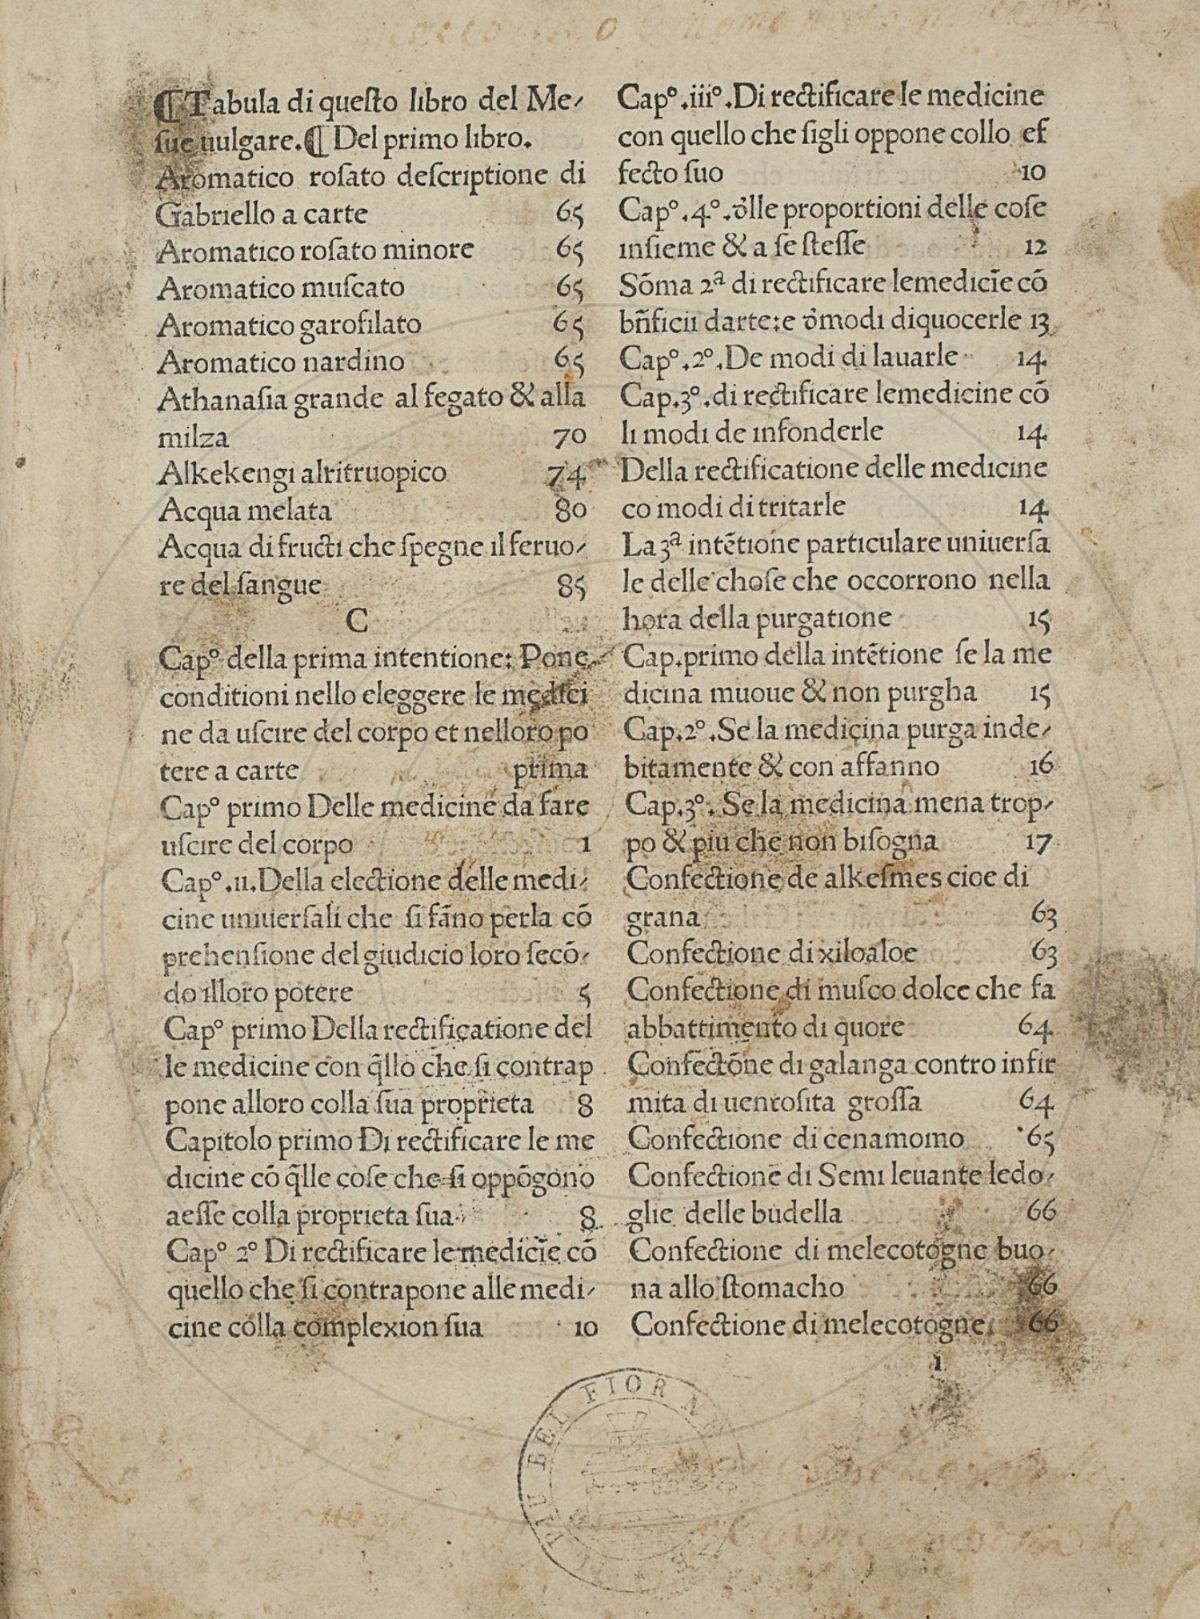 ¶Tabula di queſto libro del Me⸗
ſue uulgare.¶ Del primo libro.
Aromatico roſato deſcriptione di
Gabriello a carte 65
Aromatico roſato minore 65
Aromatico muſcato 65
Aromatico garofilato 65
Aromatico nardino 65
Athanaſia grande al fegato & alla
milza 70
Alkekengi alritruopico 74
Acqua melata 80
Acqua di fructi che ſpegne il feruo⸗
re del ſangue 85
C
Capº della prima intentione: Pone
conditioni nello eleggere le medici
ne da uſcire del corpo et nelloro po
tere a carte prima
Capº primo Delle medicine da fare
uſcire del corpo 1
Capº.ii.Della electione delle medi⸗
cine uniuerſali che ſi fāno perla cō
prehenſione del giudicio loro ſecō⸗
do illoro potere 5
Capº primo Della rectificatione del
le medicine con q̄llo che ſi contrap
pone alloro colla ſua proprieta 8
Capitolo primo Di rectificare le me
dicine cō q̄lle coſe che ſi oppōgono
aeſſe colla proprieta ſua 8
Capº 2º Di rectificare le medicīe cō
quello che ſi contrapone alle medi⸗
cine colla complexion ſua 10
Capº.iiiº.Di rectificare le medicine
con quello che ſigli oppone collo ef
fecto ſuo 10
Capº.4º.d̄lle proportioni delle coſe
inſieme & a ſe ſteſſe 12
Sōma 2ª di rectificare lemedicīe cō
bn̄ficii darte:e d̄modi diquocerle 13
Capº.2º.De modi di lauarle 14
Cap.3º.di rectificare lemedicine cō
li modi de infonderle 14
Della rectificatione delle medicine
co modi di tritarle 14
La 3ª intētione particulare uniuerſa
le delle choſe che occorrono nella
hora della purgatione 15
Cap.primo della intētione ſe la me
dicina muoue & non purgha 15
Cap.2º.Se la medicina purga inde⸗
bitamente & con affanno 16
Cap.3º. Se la medicina mena trop⸗
po & piu che non biſogna 17
Confectione de alkeſmes cioe di
grana 63
Confectione di xiloaloe 63
Confectione di muſco dolce che fa
abbattimento di quore 64
Confectōne di galanga contro infir
mita di uentoſita groſſa 64
Confectione di cenamomo 65
Confectione di Semi leuante ledo⸗
glie delle budella 66
Confectione di melecotogne buo⸗
na allo ſtomacho 66
Confectione di melecotogne 66
1
BEL FIOR